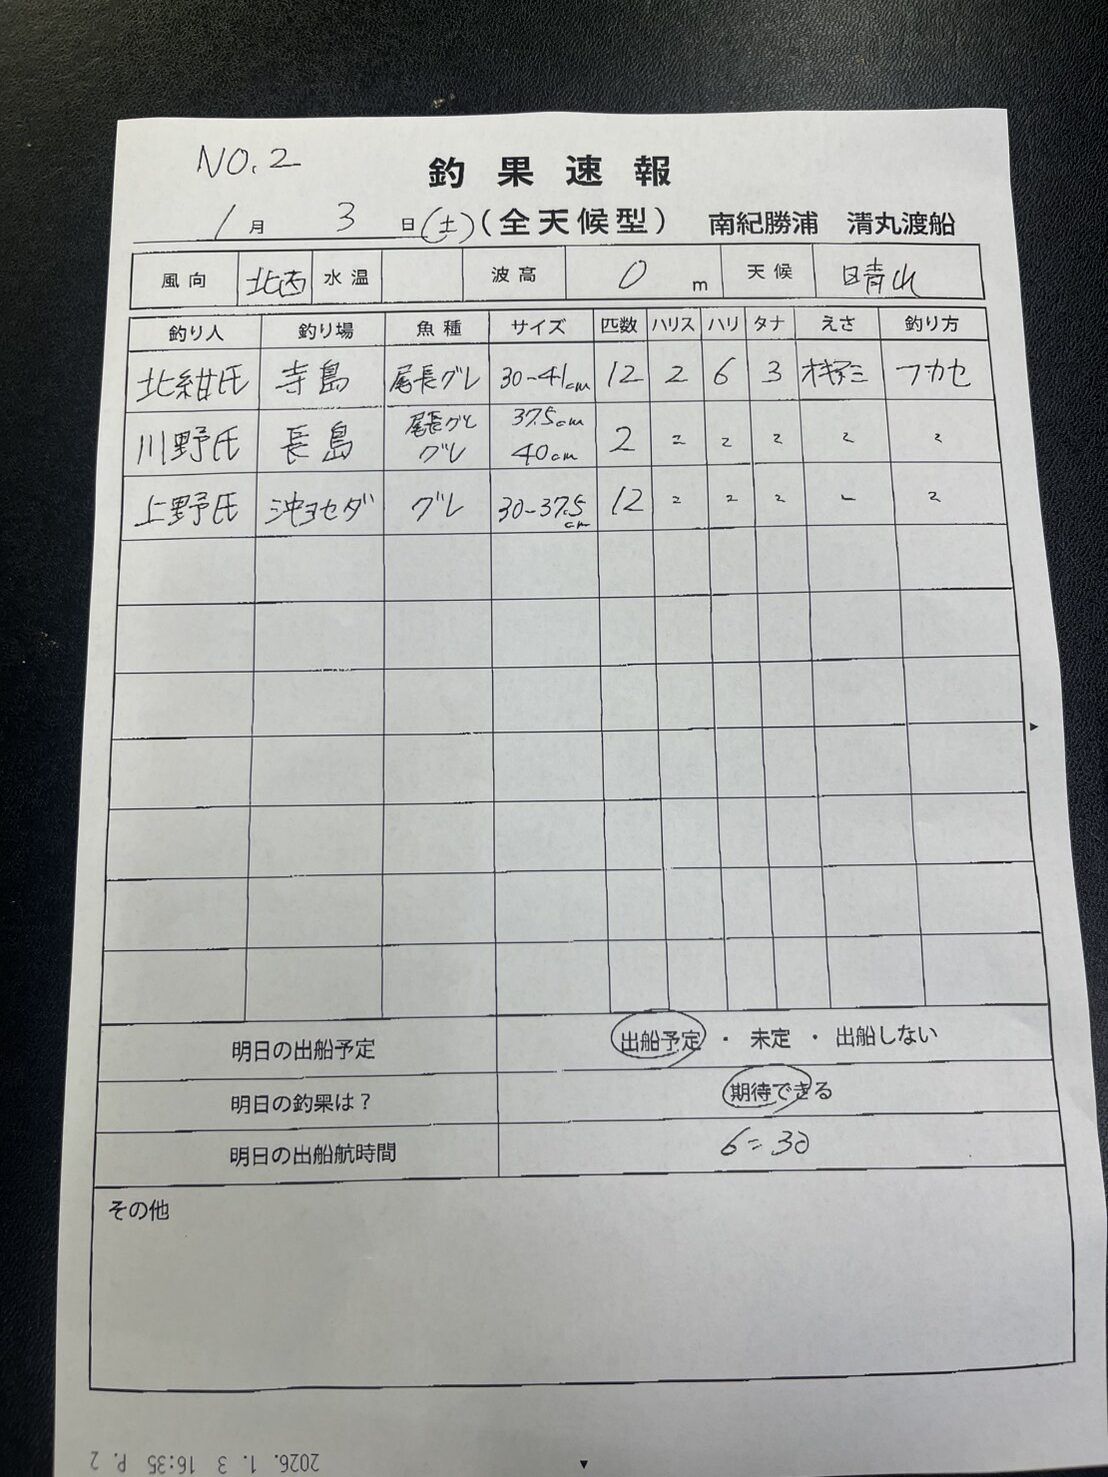 NO.2
釣果速報
1月 3日(土)(全天候型) 南紀勝浦 清丸渡船
風向 北西 水温 波高 0 m 天候 晴れ
釣り人 釣り場 魚種 サイズ 匹数 ハリス ハリ タナ えさ 釣り方
北紺氏 寺島 尾長グレ 30-41cm 12 2 6 3 オキアミ フカセ
川野氏 長島 尾長グレ 37.5cm 2 〃 〃 〃 〃 〃
グレ 40cm
上野氏 沖ヨセダ グレ 30-37.5cm 12 〃 〃 〃 〃 〃
明日の出船予定 出船予定 ・ 未定 ・ 出船しない
明日の釣果は? 期待できる
明日の出船航時間 6=30
その他
2026. 1. 3 16:35 P. 2